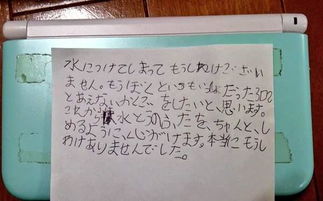 水につけてしまって もうしわけござい
ません。もうぼくといつもいっしょだった3DS
とあえないかとごをしたいと、思います。
これから 水とうのふたを、ちゃんと、し
めるように、心がけます。本当にもうし
わけありませんでした。